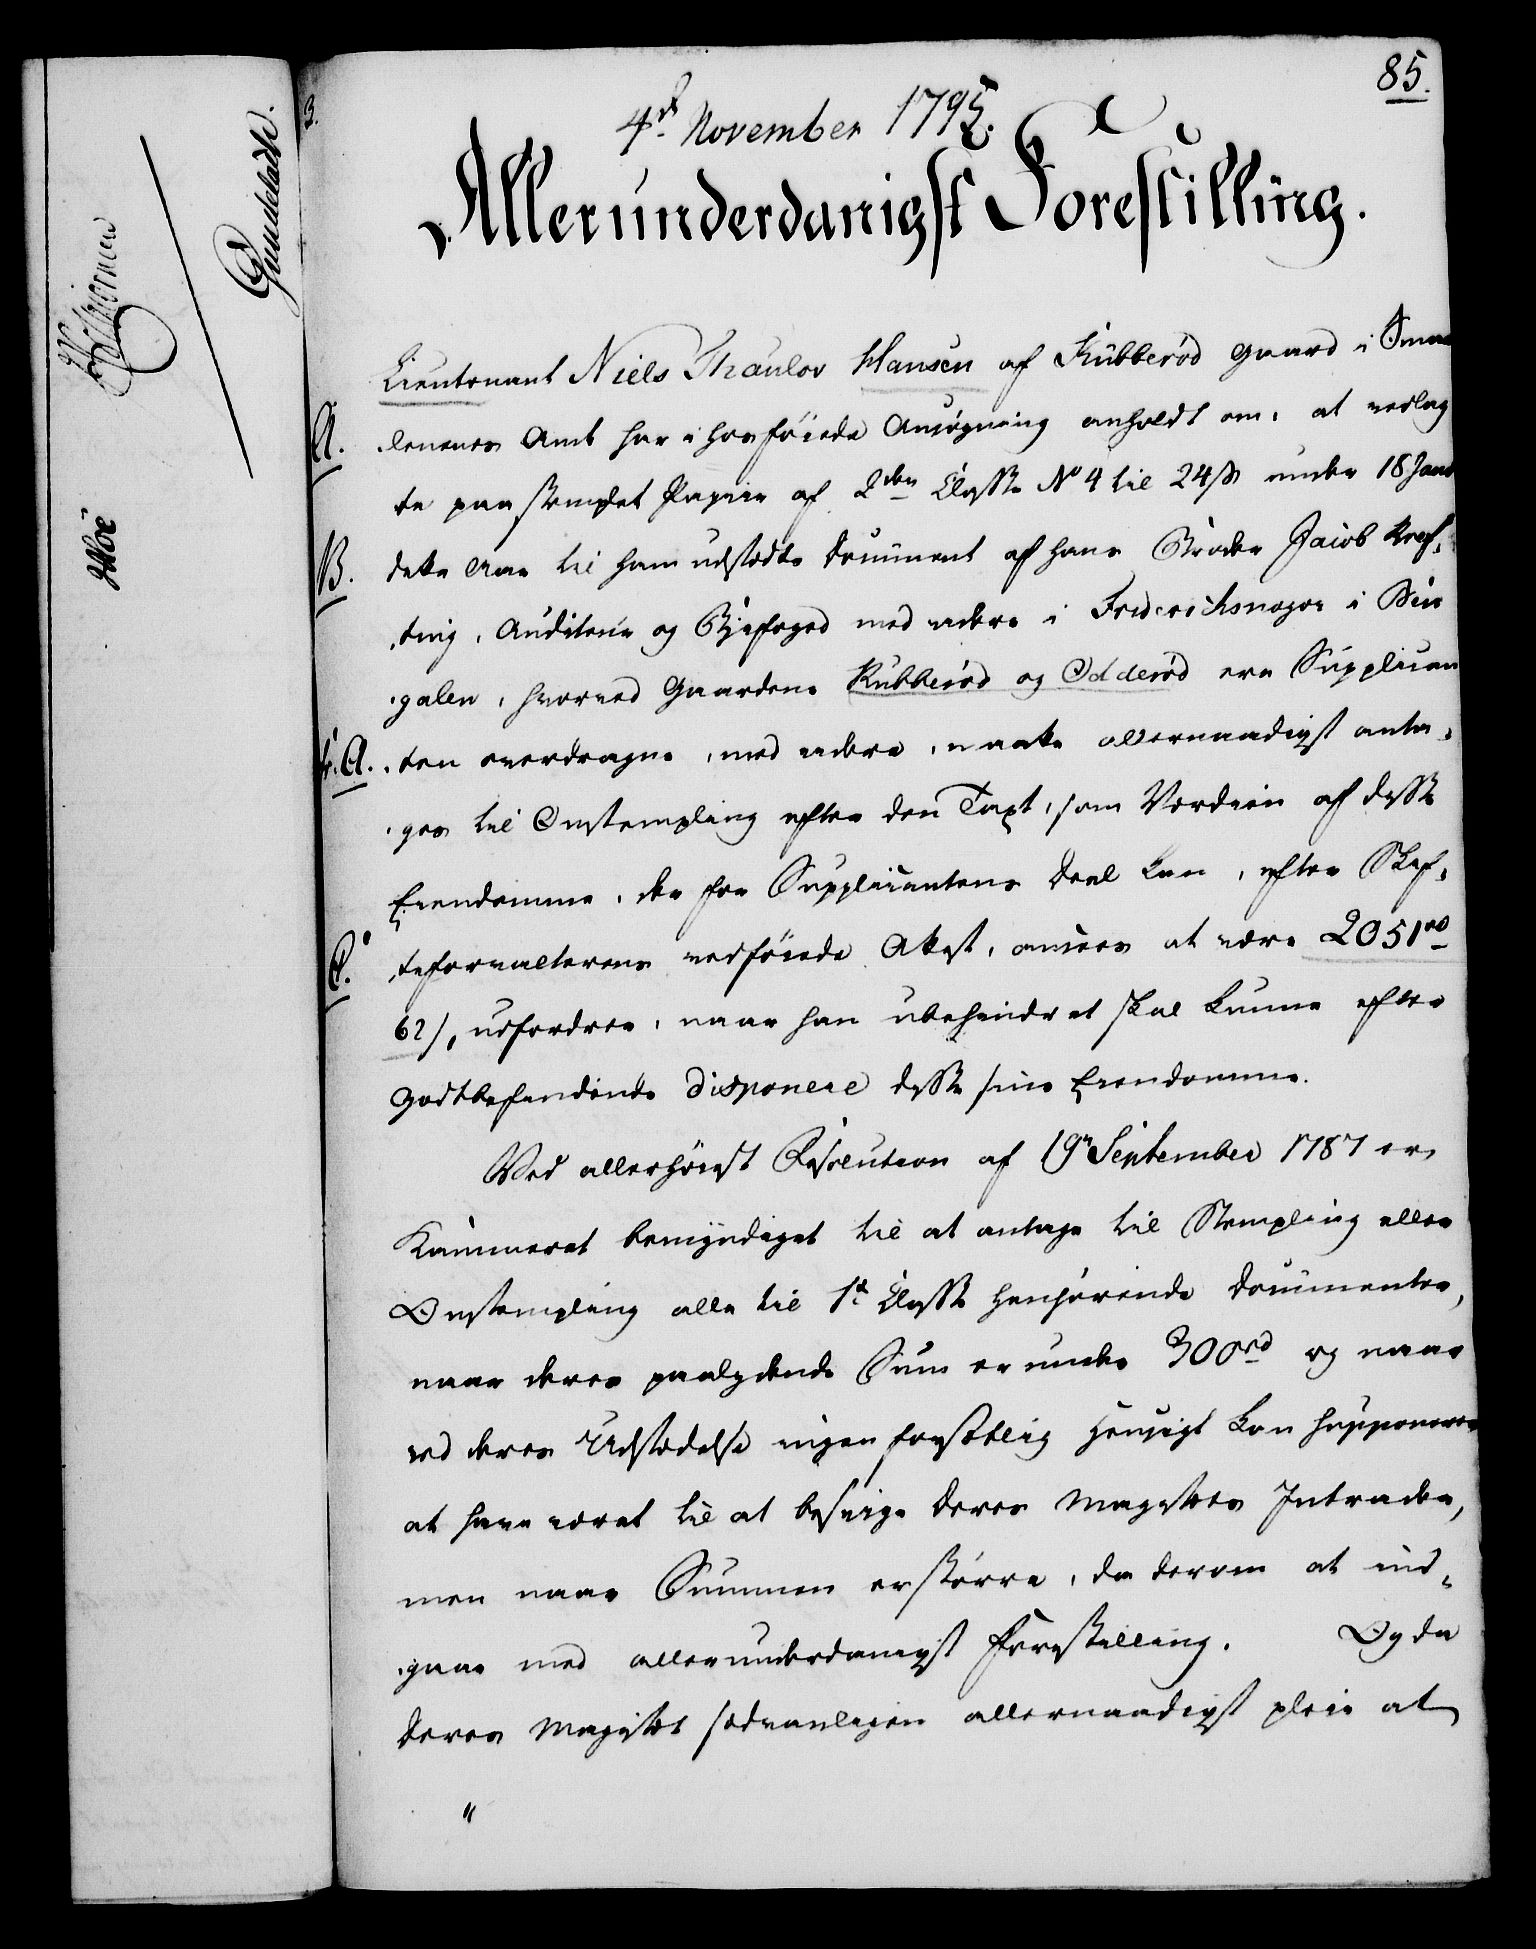 85.
4de November 1795.
Allerunderdanigst Forestilling.
Lieutenant Niels Thaulov Hansen af Kubberød Gaard i Smaa
A. lenenes Amt har i hosføiede Ansøgning anholdt om, at vedlag
te paa stemplet Papiir af 2den Classe No 4 til 24 s under 18 Janr
B. dette Aar til ham udstædte Document af hans Broder Jacob Kref-
ting, Auditeur og Byefoged med videre i Friderichsnagor i Ben
galen, hvorved Gaardene Kubberød og Odderød ere Supplican
A. ten overdragne, med videre, maatte allernaadigst anta-
ges til Omstempling efter den Taxt, som Værdien af disse
Eiendomme, der for Supplicantens Deel kan, efter Skif-
C. teforvalterens vedføiede Attest, ansees at være 2051 rd
62 s, udfordrer, naar han ubehindret skal kunne efter
Godtbefindende disponere disse sine Eiendomme.
Ved allerhøiest Resolution af 19n September 1787 er
Kammeret bemyndiget til at antage til Stempling eller
Omstempling alle til 1te Classe henhørende Documenter,
naar deres paalydende Sum er under 300 rd og naar
ved deres Udstædelse ingen forsætlig Hensigt kan supponeres
at have været til at besvige Deres Majestæts Intrader,
men naar Summen er større, da derom at ind-
gaae med allerunderdanigst Forestilling. Og da
Deres Majestæt sædvanligen allernaadigst pleier at
"